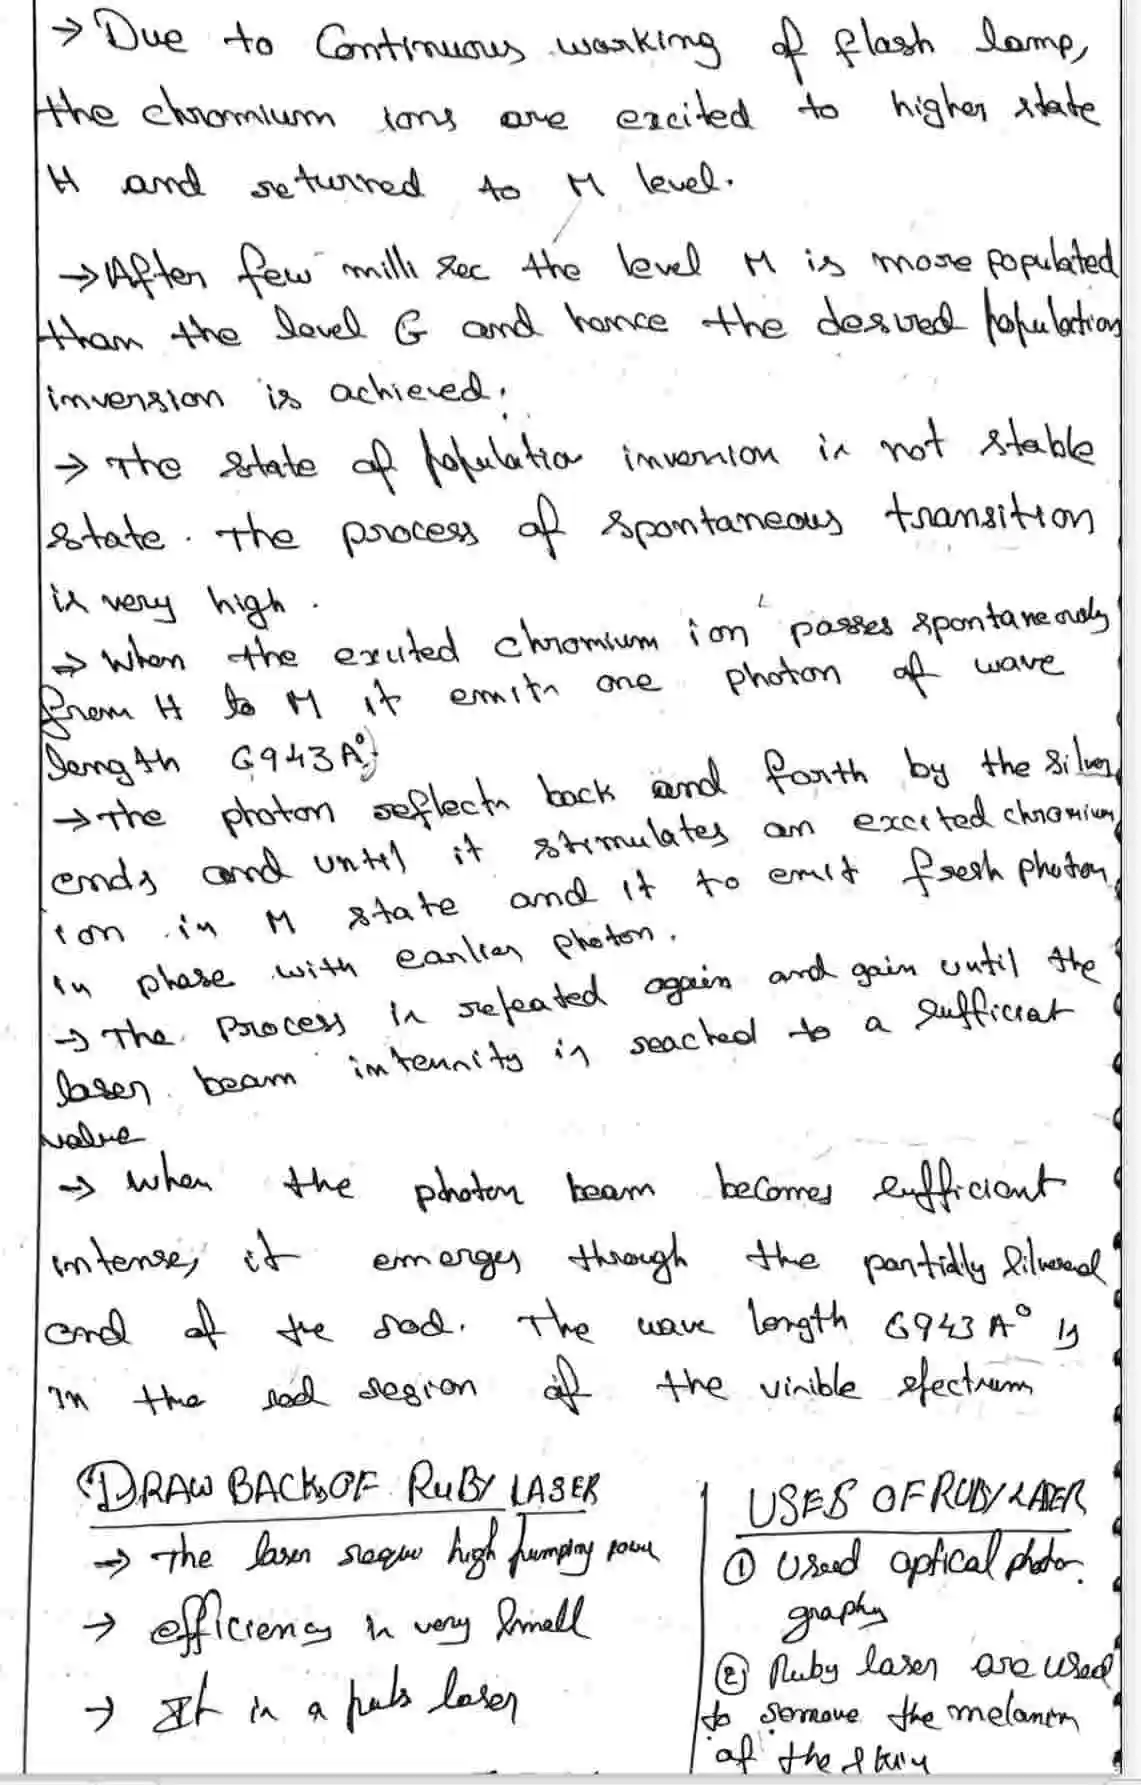 → Due to Continuous working of flash lamp,
the chromium ions are excited to higher state
H and returned to M level.
→ After few milli sec the level M is more populated
than the level G and hence the desired population
inversion is achieved.
→ The state of population inversion is not stable
state. The process of spontaneous transition
is very high.
→ When the excited chromium ion passes spontaneously
from H to M it emits one photon of wave
length 6943 A°
→ The photon reflects back and forth by the silver
ends and until it stimulates an excited chromium
ion in M state and it to emit fresh photon
in phase with earlier photon.
→ The Process is repeated again and gain until the
laser beam intensity is reached to a sufficiat
value
→ When the photon beam becomes sufficiant
intense, it emerges through the partially silvered
end of the rod. The wave length 6943 A° is
in the red region of the visible spectrum
DRAW BACKS OF RUBY LASER
→ The laser require high pumping power
→ efficiency is very small
→ It is a puls laser
USES OF RUBY LASER
① Used optical photo-
graphy
② Ruby laser are used
to remove the melanin
of the skin